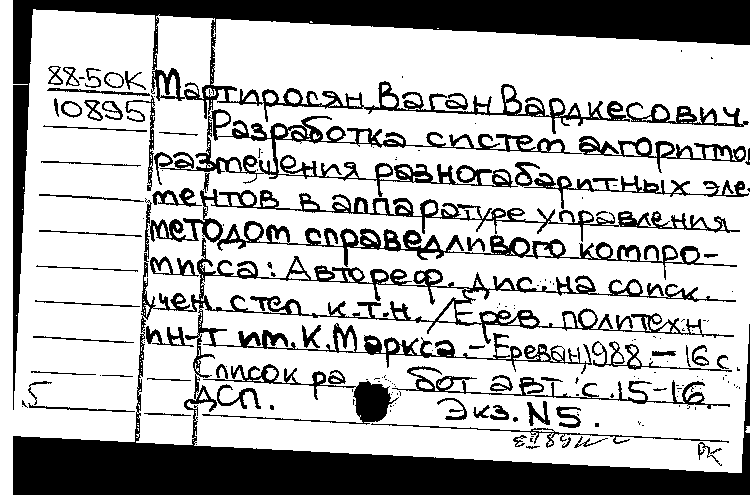 88-50К
10895
Мартиросян, Ваган Вардкесович.
Разработка систем алгоритмов
размещения разногабаритных эле-
ментов в аппаратуре управления
методом справедливого компро-
мисса: Автореф. дис. на соиск.
учен. степ. к.т.н. /Ерев. политехн
ин-т им. К. Маркса. – Ереван, 1988. – 16 с.
Список работ авт.: с. 15-16.
ДСП. Экз. N5.
5
РК